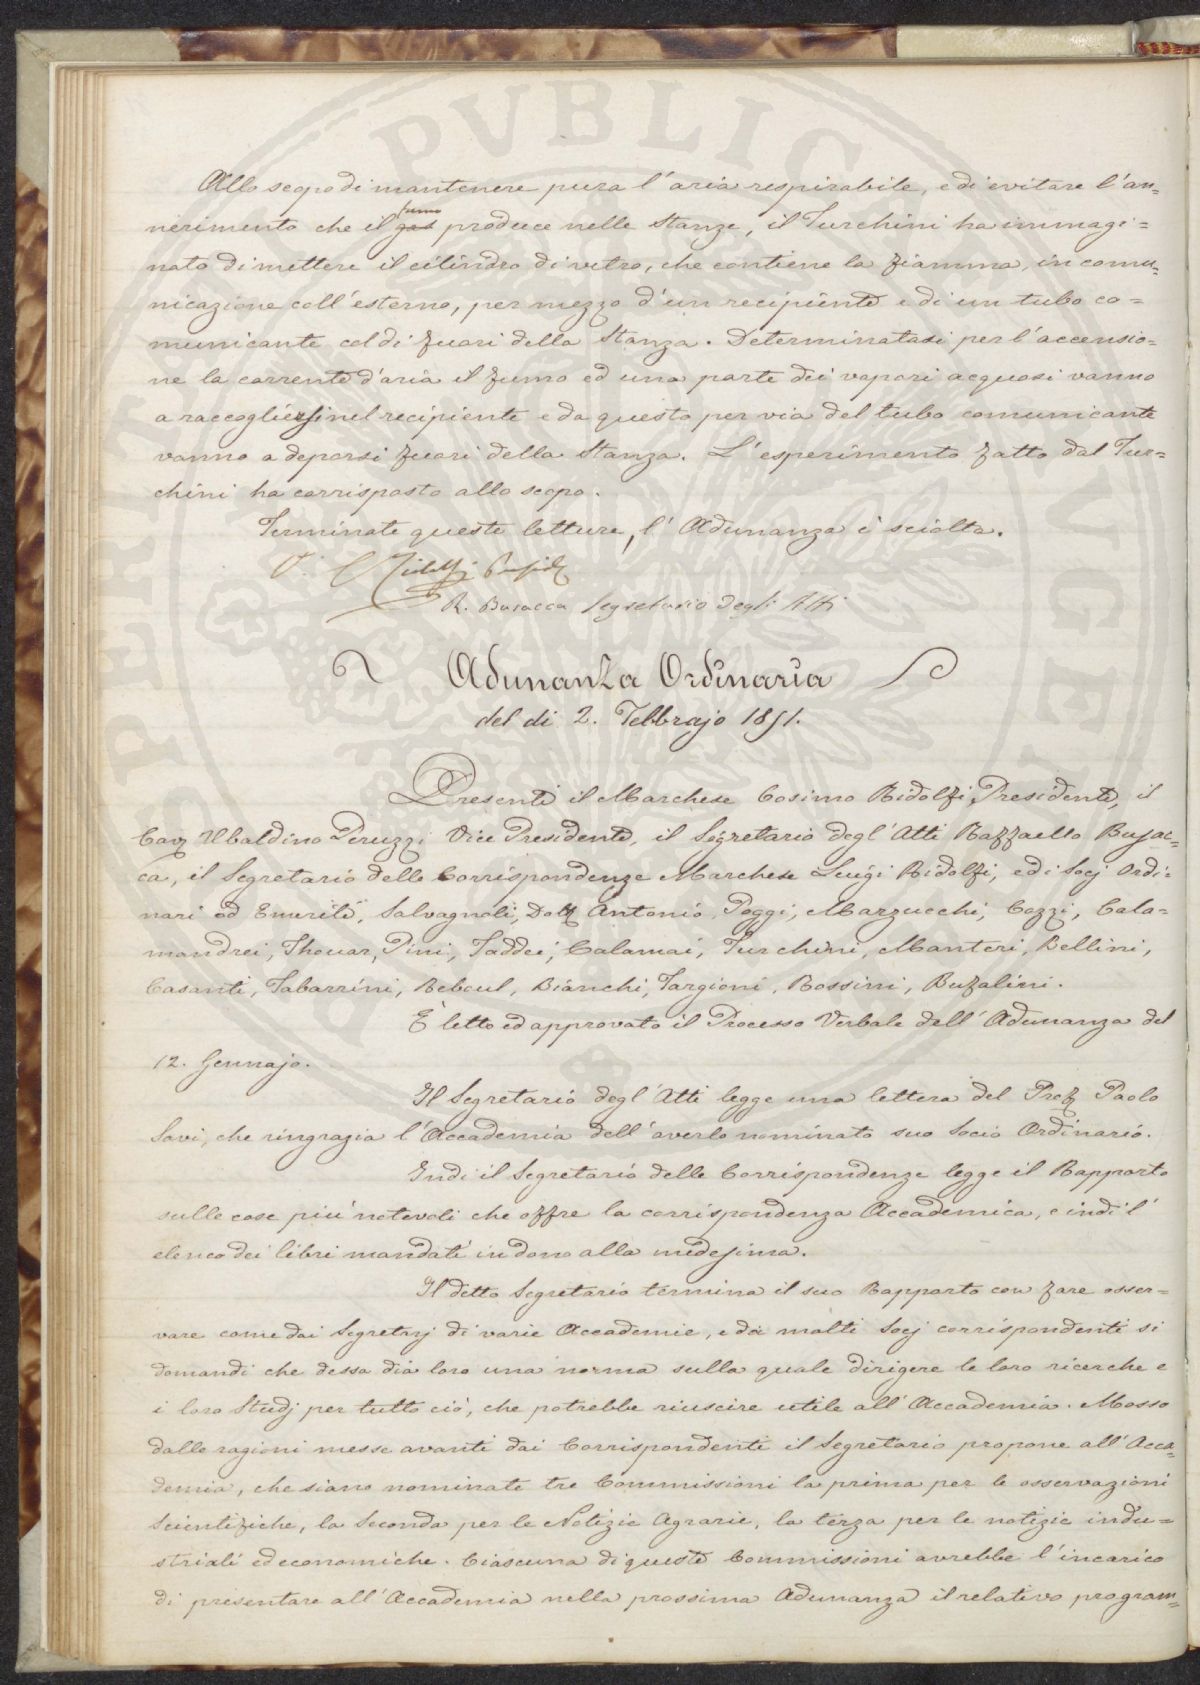 Allo scopo di mantenere pura l'aria respirabile, e di evitare l'an=
nerimento che il gas fumo produce nelle Stanze, il Turchini ha immagi=
nato di mettere il cilindro di vetro, che contiene la fiamma, in comu=
nicazione coll'esterno, per mezzo d'un recipiente e di un tubo co=
municante col di fuori della Stanza. Determinatasi per l'accensio=
ne la corrente d'aria il fumo ed una parte dei vapori acquosi vanno
a raccogliersi nel recipiente e da questo per via del tubo comunicante
vanno a deporsi fuori della Stanza. L'esperimento fatto dal Tur=
chini ha corrisposto allo scopo.
Terminate queste letture, l'Adunanza è sciolta.
V. C. Ridolfi Presid.
R. Busacca Segretario degli Atti
Adunanza Ordinaria
del di 2. Febbrajo 1851.
Presenti il Marchese Cosimo Ridolfi Presidente, il
Cav. Ubaldino Peruzzi Vice Presidente, il Segretario degl'Atti Raffaello Busac=
ca, il Segretario delle Corrispondenze Marchese Luigi Ridolfi, ed i Socj Ordi=
nari ed Emeriti, Salvagnoli, Dott. Antonio Poggi, Marzucchi, Cozzi, Cala=
mandrei, Thouar, Pini, Taddei, Calamai, Turchini, Manteri, Bellini,
Casanti, Tabarrini, Reboul, Bianchi, Targioni, Rossini, Bufalini.
È letto ed approvato il Processo Verbale dell'Adunanza del
12. Gennajo.
Il Segretario degl'Atti legge una lettera del Prof. Paolo
Savi, che ringrazia l'Accademia dell'averlo nominato suo Socio Ordinario.
Indi il Segretario delle Corrispondenze legge il Rapporto
sulle cose più notevoli che offre la corrispondenza Accademica, e indi l'
elenco dei libri mandati in dono alla medesima.
Il detto Segretario termina il suo Rapporto con fare osser=
vare come dai Segretarj di varie Accademie, e da molti Socj corrispondenti si
domandi che dessa dia loro una norma sulla quale dirigere le loro ricerche e
i loro Studj per tutto ciò, che potrebbe riuscire utile all'Accademia. Mosso
dalle ragioni messe avanti dai Corrispondenti il Segretario propone all'Acca=
demia, che siano nominate tre Commissioni la prima per le osservazioni
Scientifiche, la Seconda per le Notizie Agrarie, la terza per le notizie indu=
striali ed economiche. Ciascuna di queste Commissioni avrebbe l'incarico
di presentare all'Accademia nella prossima Adunanza il relativo program=